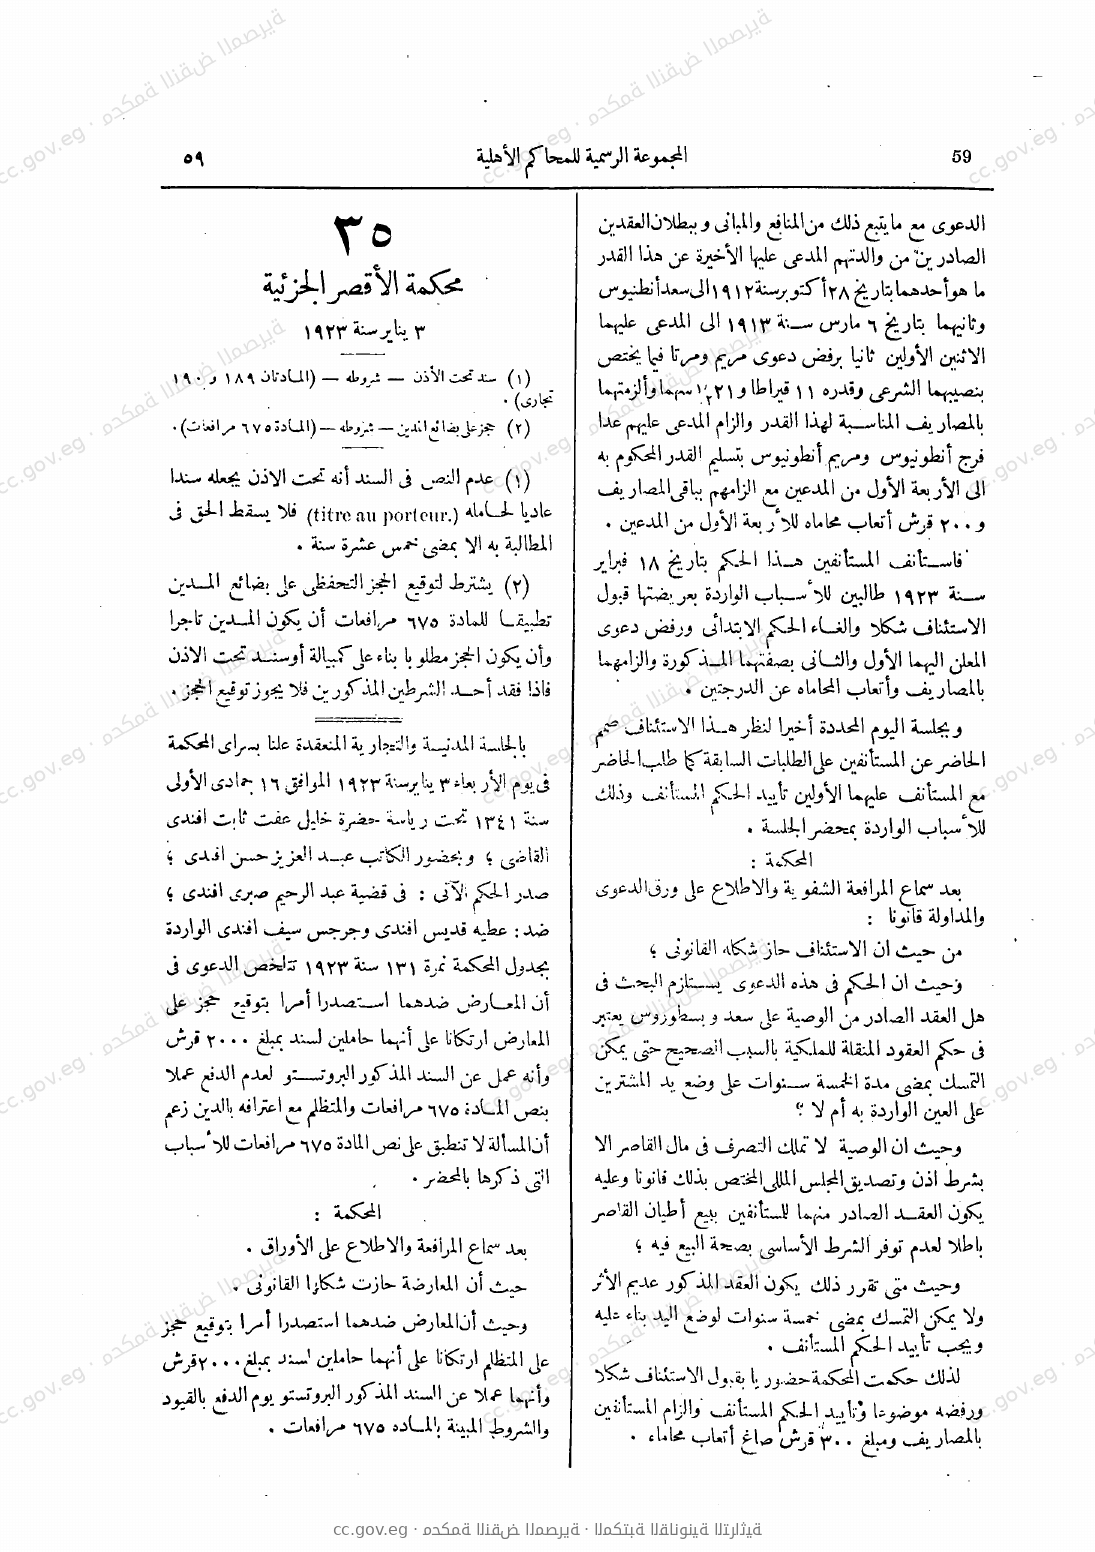 59
المجموعة الرسمية للمحاكم الأهلية
٥٩
الدعوى مع ما يتبع ذلك من المنافع والمبانى وببطلان العقدين
الصادرين من والدتهم المدعى عليها الأخيرة عن هذا القدر
ما هو أحدهما بتاريخ ٢٨ أكتوبر سنة ١٩١٢ الى سعد أنطنيوس
وثانيهما بتاريخ ٦ مارس سنة ١٩١٣ الى المدعى عليهما
الاثنين الأولين ثانيا برفض دعوى مريم ومرتا فيما يختص
بنصيبهما الشرعى وقدره ١١ قيراطا و سهما وألزمتهما
بالمصاريف المناسبة لهذا القدر والزام المدعى عليهم عدا
فرج أنطونيوس ومريم أنطونيوس بتسليم القدر المحكوم به
الى الأربعة الأول من المدعين مع الزامهم بباقى المصاريف
و ٢٠٠ قرش أتعاب محاماه للأربعة الأول من المدعين .
فاستأنف المستأنفين هذا الحكم بتاريخ ١٨ فبراير
سنة ١٩٢٣ طالبين للأسباب الواردة بعريضتها قبول
الاستئناف شكلا والغاء الحكم الابتدائى ورفض دعوى
المعلن اليهما الأول والثانى بصفتهما المذكورة والزامهما
بالمصاريف وأتعاب المحاماه عن الدرجتين .
وبجلسة اليوم المحددة أخيرا لنظر هذا الاستئناف صمم
الحاضر عن المستأنفين على الطلبات السابقة كما طلب الحاضر
مع المستأنف عليهما الأولين تأييد الحكم المستأنف وذلك
للأسباب الواردة بمحضر الجلسة .
المحكمة :
بعد سماع المرافعة الشفوية والاطلاع على ورق الدعوى
والمداولة قانونا :
من حيث ان الاستئناف حاز شكله القانونى ؛
وحيث ان الحكم فى هذه الدعوى يستلزم البحث فى
هل العقد الصادر من الوصية على سعد وبسطوروس يعتبر
فى حكم العقود المنقلة للملكية بالسبب الصحيح حتى يمكن
التمسك بمضى مدة الخمسة سنوات على وضع يد المشترين
على العين الواردة به أم لا ؟
وحيث ان الوصية لا تملك التصرف فى مال القاصر الا
بشرط اذن وتصديق المجلس المللى المختص بذلك قانونا وعليه
يكون العقد الصادر منهما للمستأنفين ببيع أطيان القاصر
باطلا لعدم توفر الشرط الأساسى بصحة البيع فيه ؛
وحيث متى تقرر ذلك يكون العقد المذكور عديم الأثر
ولا يمكن التمسك بمضى خمسة سنوات لوضع اليد بناء عليه
ويجب تأييد الحكم المستأنف .
لذلك حكمت المحكمة حضوريا بقبول الاستئناف شكلا
ورفضه موضوعا وتأييد الحكم المستأنف والزام المستأنفين
بالمصاريف ومبلغ ٣٠٠ قرش صاغ أتعاب محاماه .
٣٥
محكمة الأقصر الجزئية
٣ يناير سنة ١٩٢٣
(١) سند تحت الأذن — شروطه — (المادتان ١٨٩ و ١٩٠
تجارى) .
(٢) حجز على بضائع المدين — شروطه — (المادة ٦٧٥ مرافعات) .
(١) عدم النص فى السند أنه تحت الاذن يجعله سندا
عاديا لحامله (titre au porteur.) فلا يسقط الحق فى
المطالبة به الا بمضى خمس عشرة سنة .
(٢) يشترط لتوقيع الحجز التحفظى على بضائع المدين
تطبيقا للمادة ٦٧٥ مرافعات أن يكون المدين تاجرا
وأن يكون الحجز مطلوبا بناء على كمبيالة أو سند تحت الاذن
فاذا فقد أحد الشرطين المذكورين فلا يجوز توقيع الحجز .
بالجلسة المدنية والتجارية المنعقدة علنا بسراى المحكمة
فى يوم الأربعاء ٣ يناير سنة ١٩٢٣ الموافق ١٦ جمادى الأولى
سنة ١٣٤١ تحت رياسة حضرة خليل عفت ثابت افندى
القاضى ؛ وبحضور الكاتب عبد العزيز حسن افندى ؛
صدر الحكم الآتى : فى قضية عبد الرحيم صبرى افندى ؛
ضد : عطيه قديس افندى وجرجس سيف افندى الواردة
بجدول المحكمة نمرة ١٣١ سنة ١٩٢٣ تتلخص الدعوى فى
أن المعارض ضدهما استصدرا أمرا بتوقيع حجز على
المعارض ارتكانا على أنهما حاملين لسند بمبلغ ٢٠٠٠ قرش
وأنه عمل عن السند المذكور البروتستو لعدم الدفع عملا
بنص المادة ٦٧٥ مرافعات والمتظلم مع اعترافه بالدين زعم
أن المسألة لا تنطبق على نص المادة ٦٧٥ مرافعات للأسباب
التى ذكرها بالمحضر .
المحكمة :
بعد سماع المرافعة والاطلاع على الأوراق .
حيث أن المعارضة حازت شكلها القانونى .
وحيث أن المعارض ضدهما استصدرا أمرا بتوقيع حجز
على المتظلم ارتكانا على أنهما حاملين لسند بمبلغ ٢٠٠٠ قرش
وأنهما عملا عن السند المذكور البروتستو يوم الدفع بالقيود
والشروط المبينة بالماده ٦٧٥ مرافعات .
cc.gov.eg · محكمة النقض المصرية · المكتبة القانونية التراثية